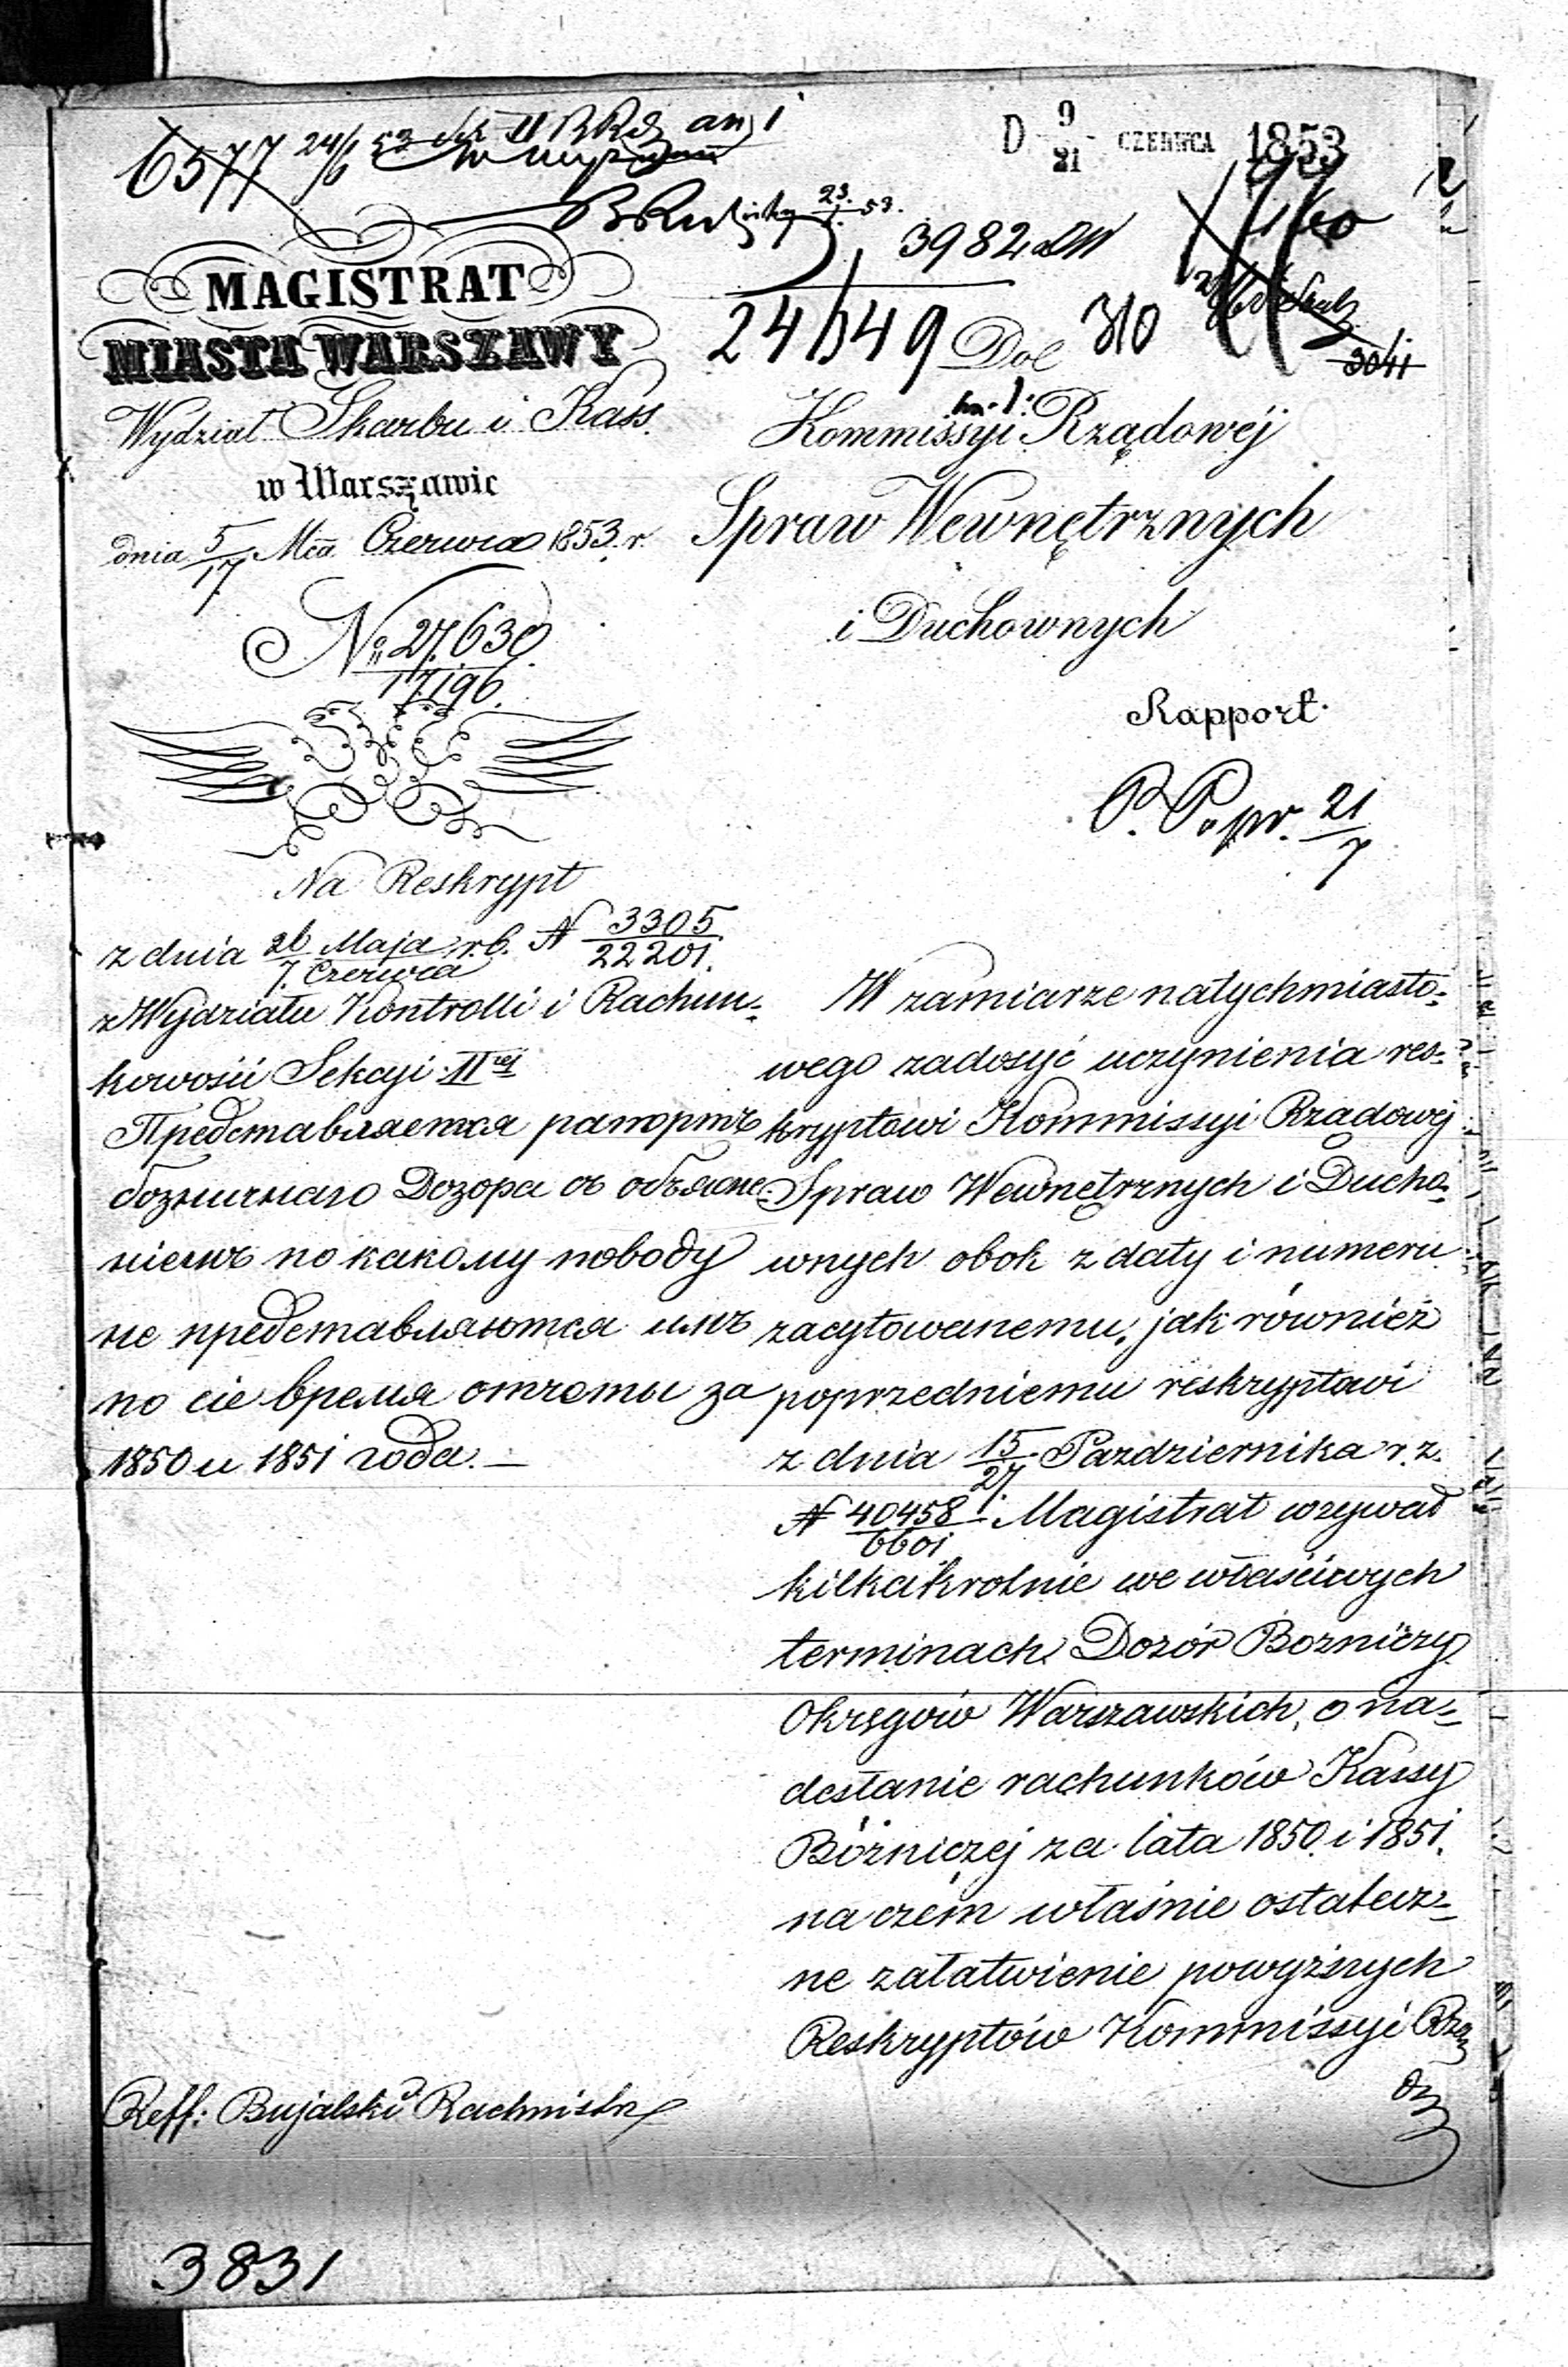 D 9/21 CZERWCA 1853
6577 24/6 53
3982
24149 310
3041
MAGISTRAT
MIASTA WARSZAWY
Wydział Skarbu i Kass
w Warszawie
dnia 5/17 Mca Czerwca 1853 r.
№ 27,639/17,196.
Kommissyi Rządowéj
Spraw Wewnętrznych
i Duchownych
Rapport.
21/7
Na Reskrypt
z dnia 26 Maja/7 Czerwca r.b. N 3305/22201.
z Wydziału Kontrolli i Rachun=
kowości Sekcyi IIej
Представляется рапортъ
божничнаго Дозора съ объясне=
ніемъ по какому поводу
не представляются имъ
по сіе время отчеты за
1850 и 1851 года. —
W zamiarze natychmiasto=
wego zadosyć uczynienia res=
kryptowi Kommissyi Rządowéj
Spraw Wewnętrznych i Ducho=
wnych obok z daty i numeru
zacytowanemu, jak również
poprzedniemu reskryptowi
z dnia 15/27 Pazdziernika r.z.
N 40458/6601 Magistrat wzywał
kilkakrotnie we właściwych
terminach Dozór Bozniczy
Okręgów Warszawskich, o na=
desłanie rachunków Kassy
Bóżniczej za lata 1850 i 1851.
na czém właśnie ostatecz=
ne załatwienie powyższych
Reskryptów Kommissyi Rzą
Reff: Bujalski Rachmistrz
3831